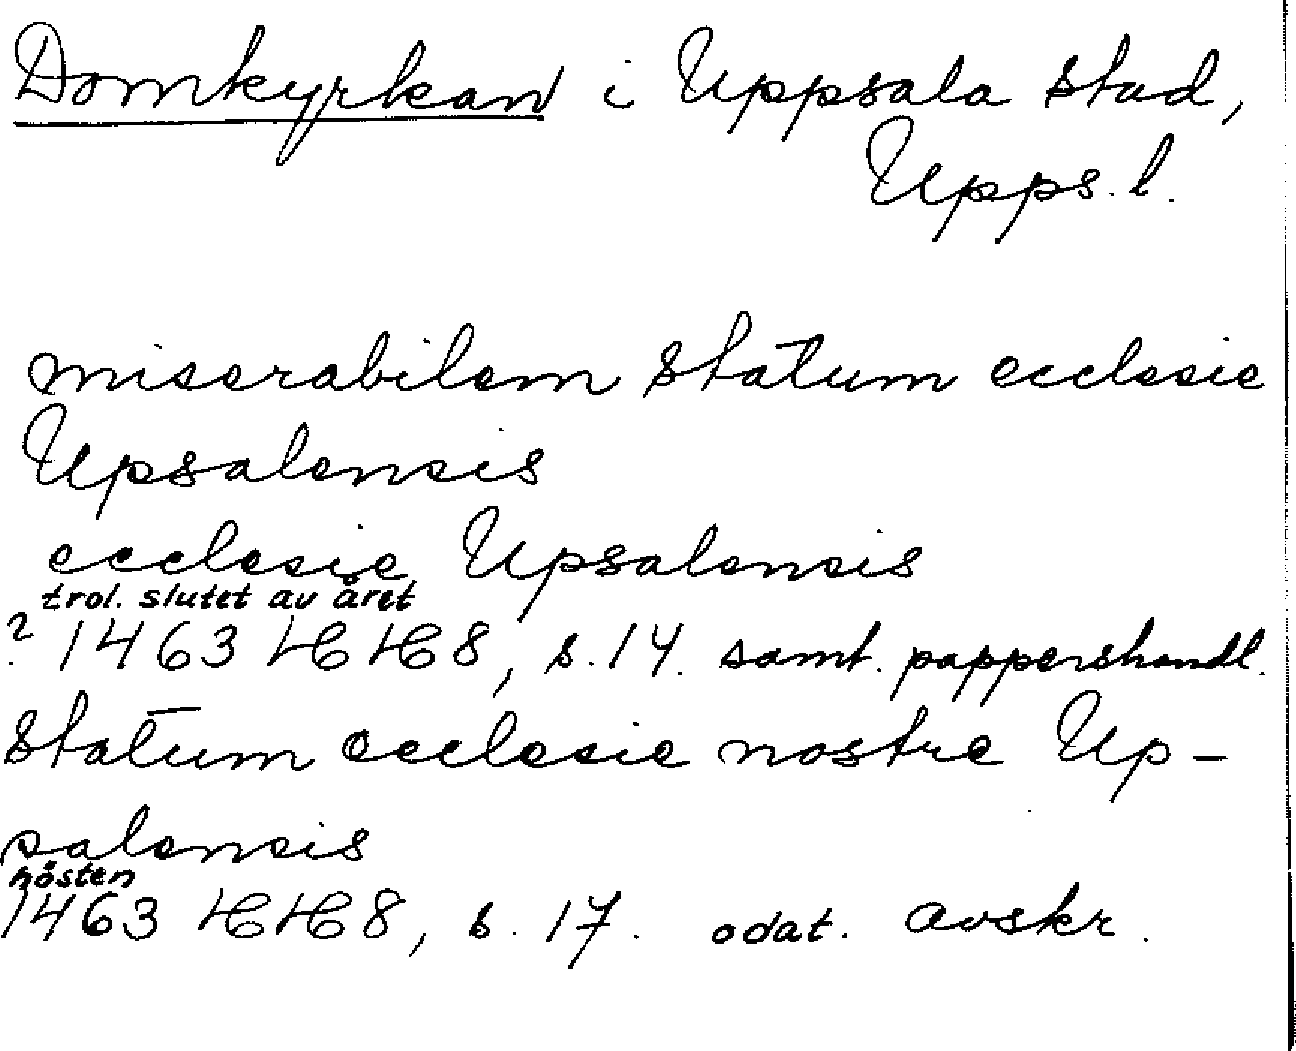 Domkyrkan i Uppsala stad,
Upps. l.
miserabilem statum ecclesie
Upsalensis
ecclesie Upsalensis
trol. slutet av året
? 1463 HH 8, s. 14. samt. pappershandl.
statum ecclesie nostre Up-
salensis
hösten
1463 HH 8, s. 17. odat. avskr.